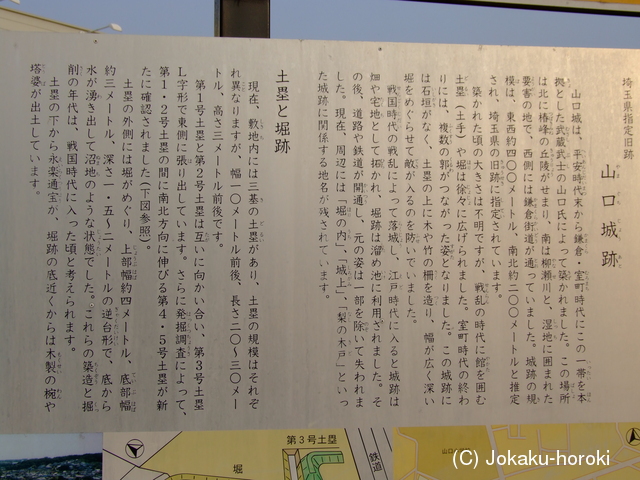 埼玉県指定旧跡
山口城跡
山口城は、平安時代末から鎌倉・室町時代にこの一帯を本
拠とした武蔵武士の山口氏によって築かれました。この場所
は北に椿峰の丘陵がせまり、南は柳瀬川と、湿地に囲まれた
要害の地で、西側には鎌倉街道が通っていました。城跡の規
模は、東西約四〇〇メートル、南北約二〇〇メートルと推定
され、埼玉県の旧跡に指定されています。
築かれた頃の大きさは不明ですが、戦乱の時代に館を囲む
土塁(土手)や堀は徐々に広げられました。室町時代の終わ
りには、複数の郭がつながった姿となりました。この城跡に
は石垣がなく、土塁の上に木や竹の柵を造り、幅が広く深い
堀をめぐらせて敵が入るのを防いでいました。
戦国時代の戦乱によって落城し、江戸時代に入ると城跡は
畑や宅地として拓かれ、堀跡は溜め池に利用されました。そ
の後、道路や鉄道が開通し、元の姿は一部を除いて失われま
した。現在、周辺には「堀の内」「城上」、「梨の木戸」といっ
た城跡に関係する地名が残されています。
土塁と堀跡
現在、敷地内には三基の土塁があり、土塁の規模はそれぞ
れ異なりますが、幅一〇メートル前後、長さ二〇～三〇メー
トル、高さ三メートル前後です。
第1号土塁と第2号土塁は互いに向かい合い、第3号土塁
L字形で東側に張り出しています。さらに発掘調査によって、
第1・2号土塁の間に南北方向に伸びる第4・5号土塁が新
たに確認されました(下図参照)。
土塁の外側には堀がめぐり、上部幅約四メートル、底部幅
約三メートル、深さ一・五～二メートルの逆台形で、底から
水が湧き出して沼地のような状態でした。これらの築造と掘
削の年代は、戦国時代に入った頃と考えられます。
土塁の下から永楽通宝が、堀跡の底近くからは木製の椀や
塔婆が出土しています。
第3号土塁
堀
鉄道
(C) Jokaku-horoki